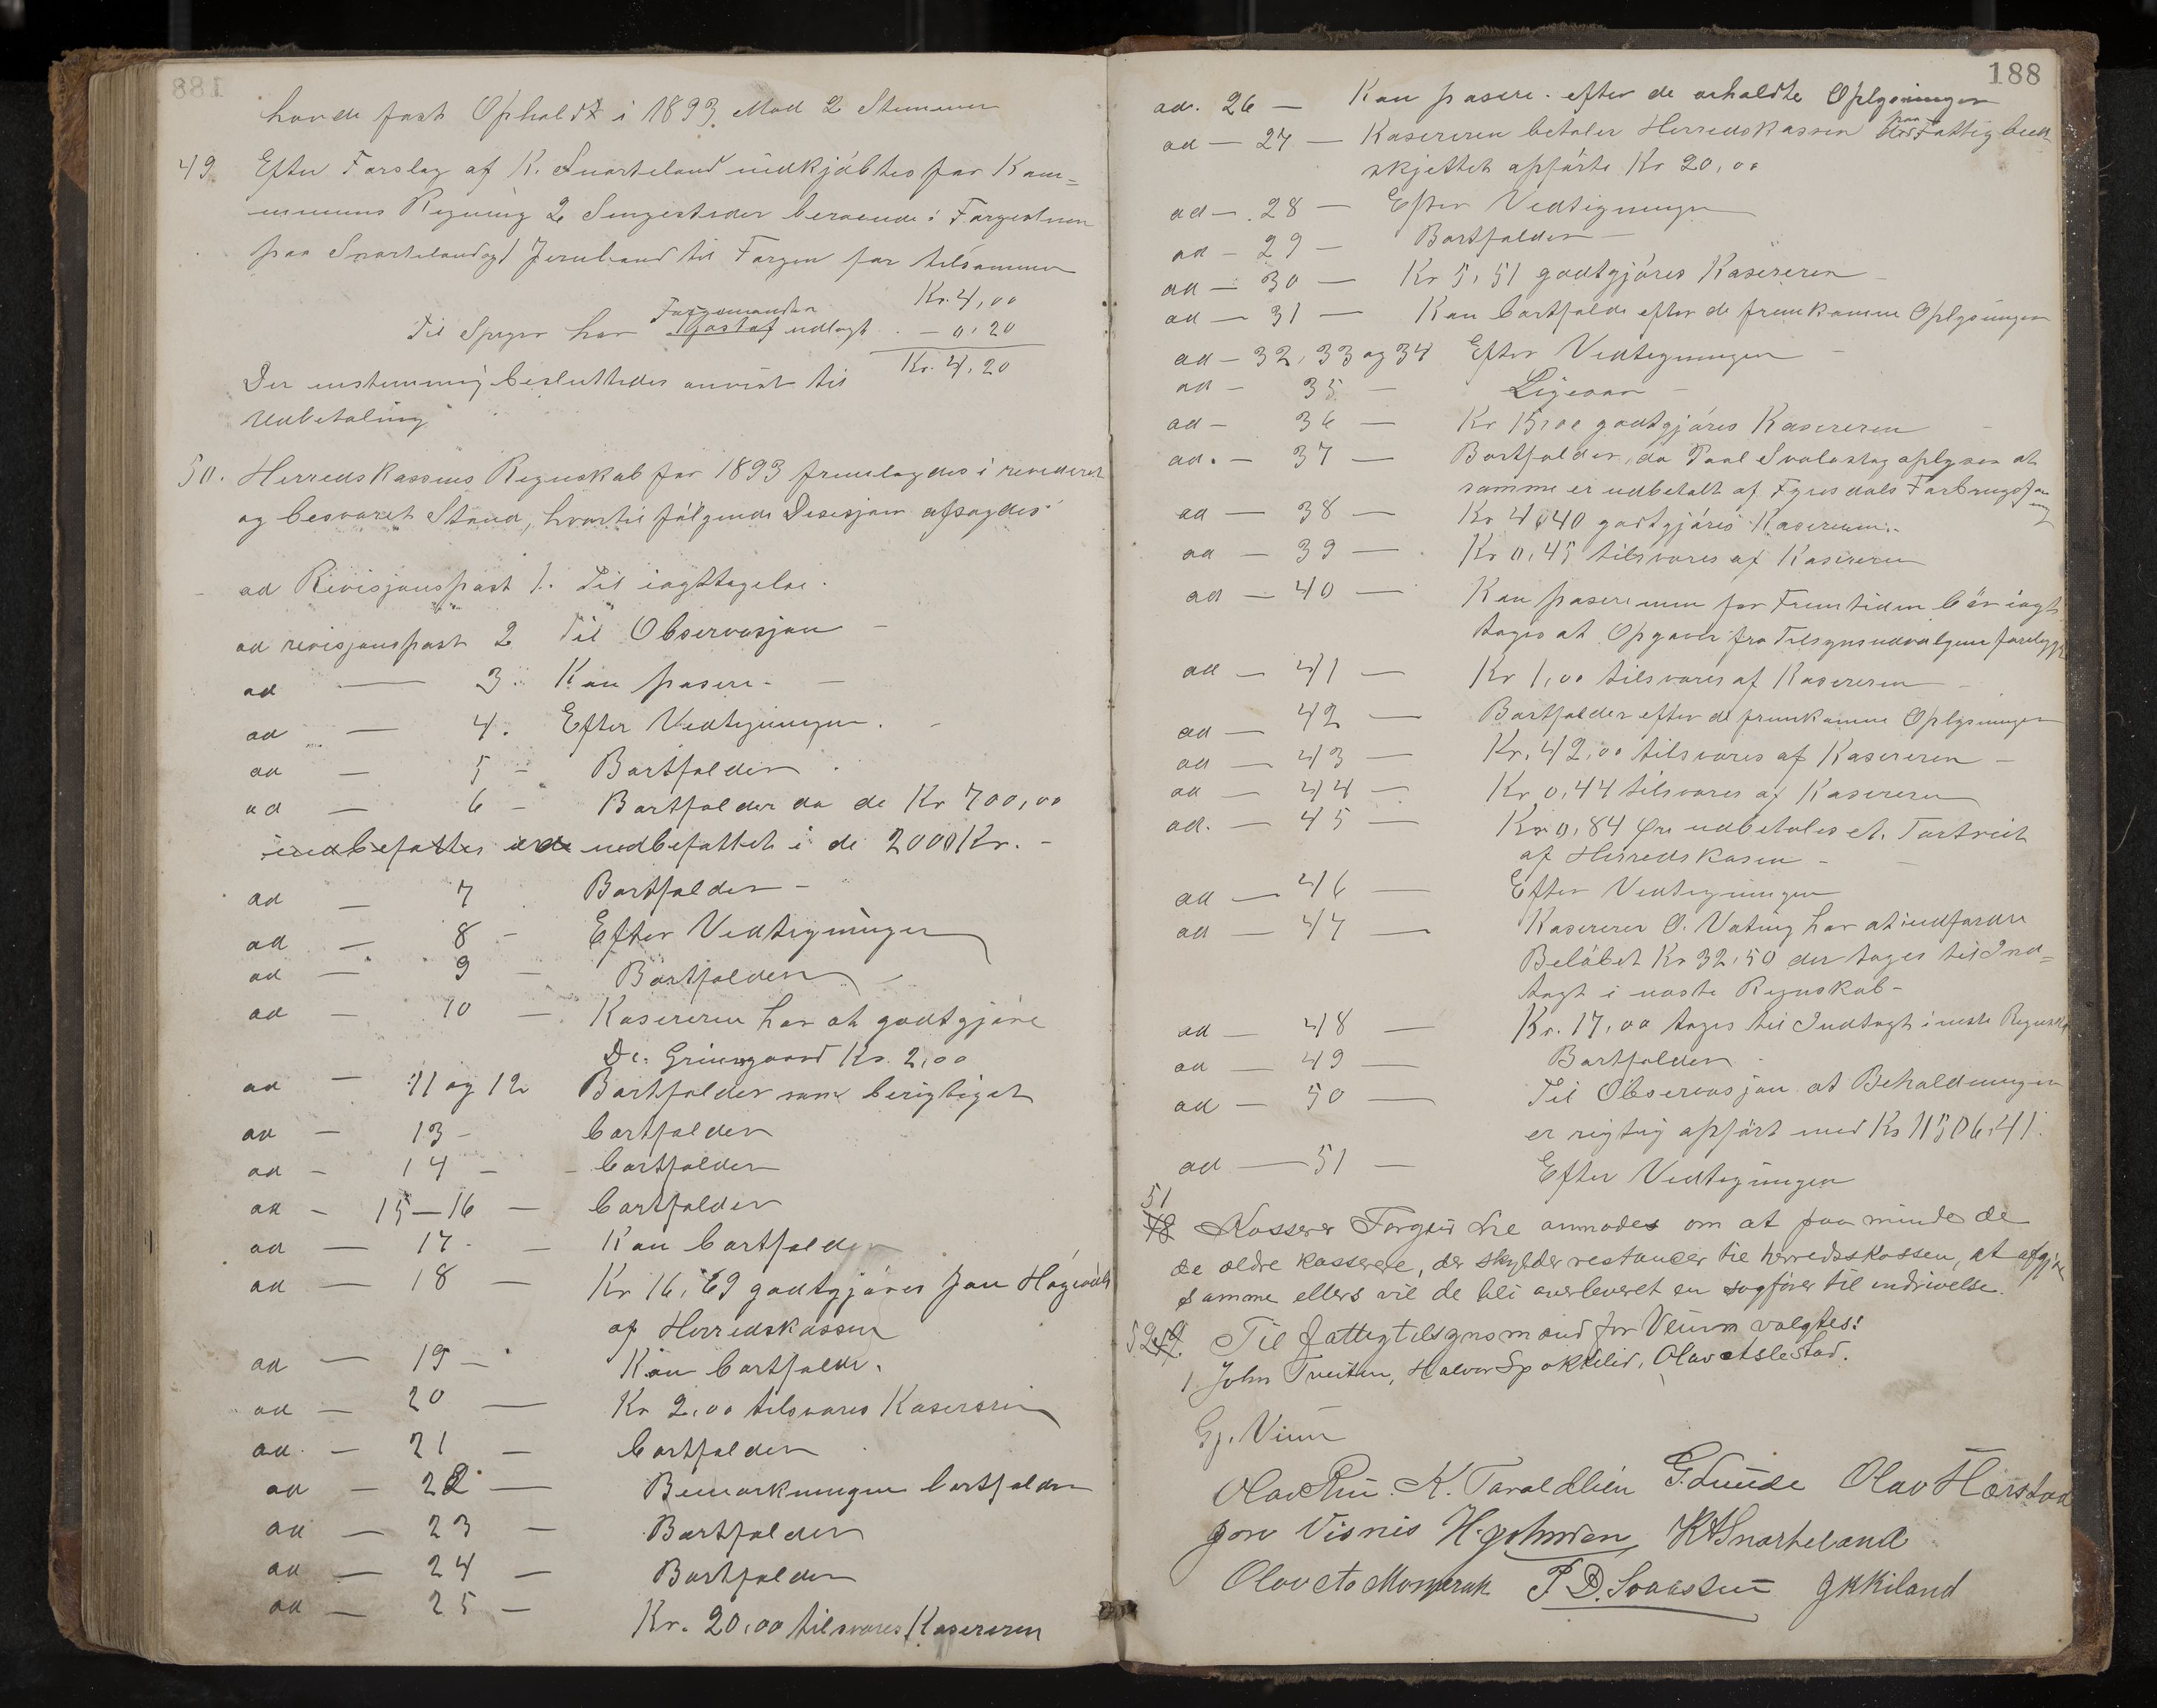 havde fast Opholdt i 1893. Mod 2 Stemmer
49. Efter Forslag af K. Snarteland indkjøbtes for Kom=
munens Regning 2 Sengesteder beroende i Fargestuen
paa Snarteland og 1 Jernband til Fargen for tilsammen
Kr. 4,00
Til Spiger har Forgemanden udlagt - 0,20
Kr. 4,20
Der enstemmig besluttedes anvist til
Udbetaling
50. Herredskassens Regnskab for 1893 fremlagdes i revideret
og besvaret Stand, hvortil følgende Desisjon afsagdes
ad Revisjonspost 1. Til iagttagelse.
ad revisjonspost 2 Til Observasjon -
ad — 3. Kan pasere. -
ad — 4. Efter Vedtegningen.
ad — 5 - Bortfalder
ad — 6 - Bortfalder da de Kr 700,00
indbefattes er indbefattet i de 2000 Kr. -
ad — 7 Bortfalder -
ad — 8 - Efter Vedtegningen
ad — 9 — Bortfalder
ad — 10 — Kasereren har at godtgjøre
Dr. Grimsgaard Kr. 2,00
ad — 11 og 12 Bortfalder som berigtiget
ad — 13 - bortfalder
ad - 14 - bortfalder
ad - 15—16 — bortfalder
ad — 17 — Kan bortfalder
ad — 18 — Kr 16,69 godtgjøres Jon Høgevold
af Herredskassen
ad — 19 — Kan bortfalde.
ad — 20 — Kr 2,00 tilsvares Kasereren
ad — 21 — bortfalder
ad — 22 — Bemærkningen bortfalder
ad — 23 — Bortfalder
ad — 24 — Bortfalder
ad — 25 — Kr. 20,00 tilsvares Kasereren
188
ad. 26 — Kan pasere. efter de erholdte Oplysninger
ad — 27 — Kasereren betaler Herredskassen paa Fattigbud
skjettet opførte Kr 20,00
ad — 28 — Efter Vedtegningen
ad — 29 — Bortfalder
ad — 30 — Kr 5,51 godtgjøres Kasereren
ad — 31 — Kan bortfalde efter de fremkomne Oplysninger
ad — 32, 33 og 34 Efter Vedtegningen
ad — 35 — Ligesaa -
ad — 36 — Kr 15,00 godtgjøres Kasereren
ad. — 37 — Bortfalder, da Paal Svalastog oplyser at
samme er udbetalt af Fyrisdals Forbrugsfor
ad — 38 — Kr 4,40 godtgjøres Kasereren.
ad — 39 — Kr 0,45 tilsvares af Kasereren
ad — 40 — Kan pasere men for Fremtiden bør iagt
tages at Opgaver fra Tilsynsudvalgene foreligge
ad — 41 — Kr 1,00 tilsvares af Kasereren
ad — 42 — Bortfalder efter de fremkomne Oplysninger
ad — 43 — Kr. 42,00 tilsvares af Kasereren -
ad — 44 — Kr 0,44 tilsvares af Kasereren
ad. — 45 — Kr 0,84 Øre udbetales et.
af Herredskasen -
ad — 46 — Efter Vedtegningen
ad — 47 — Kaserer O. Vating har at indfordre
Beløbet Kr 32,50 der tages til Ind=
tægt i næste Regnskab -
ad — 48 — Kr. 17,00 tages til Indtægt i næste Regnskab
ad — 49 — Bortfalder
ad — 50 — Til Observasjon at Beholdningen
er rigtig opført med Kr 11506,41.
ad — 51 — Efter Vedtegningen
51 Kasserer Torgeir Lie anmodes om at paaminde de
de ældre kasserere, der skylder restancer til herredskassen, at afgjøre
samme ellers vil de bli overleveret en sagfører til inddrivelse.
52 Til fattigtilsynsmænd for Veum valgtes:
1. John Tveiten, Halvor Spokkelid, Olav Aslestad.
Gj. Vium
Olav Rui. K. Taraldlien G. Lunde Olav Hærstad
Jon Visnis H. Johnsen K A Snarteland
Olav Momrak P D. Svaastu J K Kiland